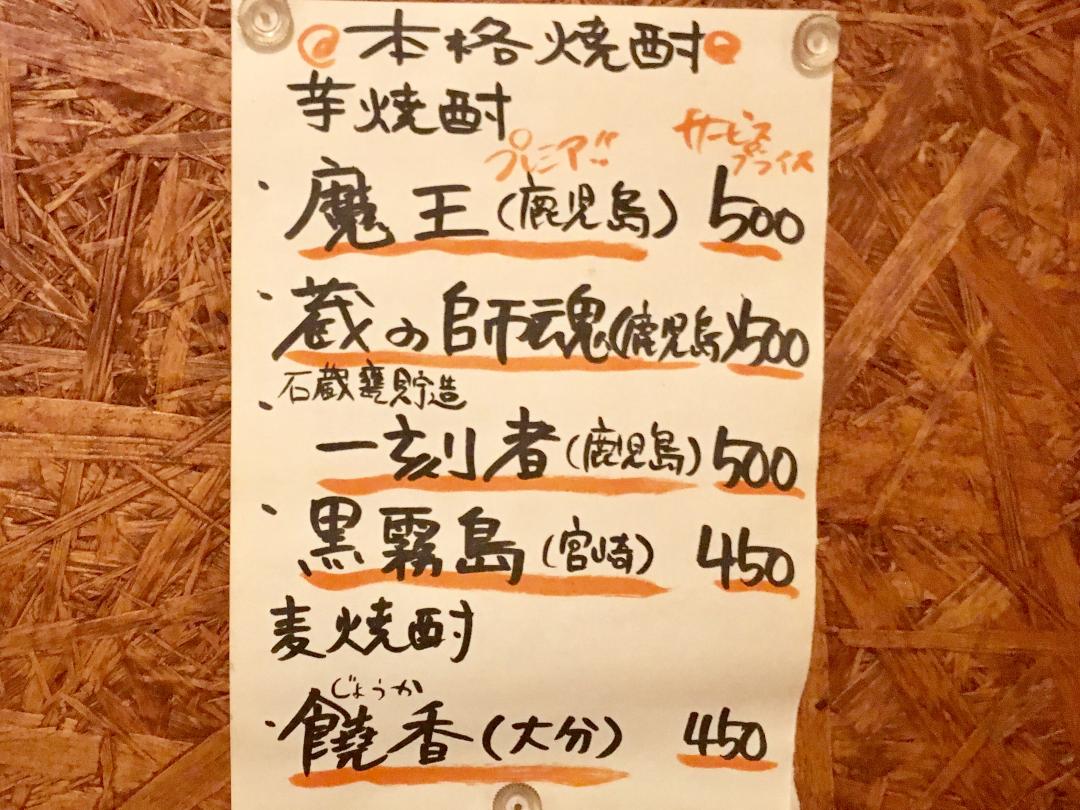 @本格焼酎
芋焼酎
プレミア!! サービスプライス
・魔王(鹿児島) 500
・蔵の師魂(鹿児島) 500
石蔵甕貯造
・一刻者(鹿児島) 500
・黒霧島(宮崎) 450
麦焼酎
じょうか
・饒香(大分) 450